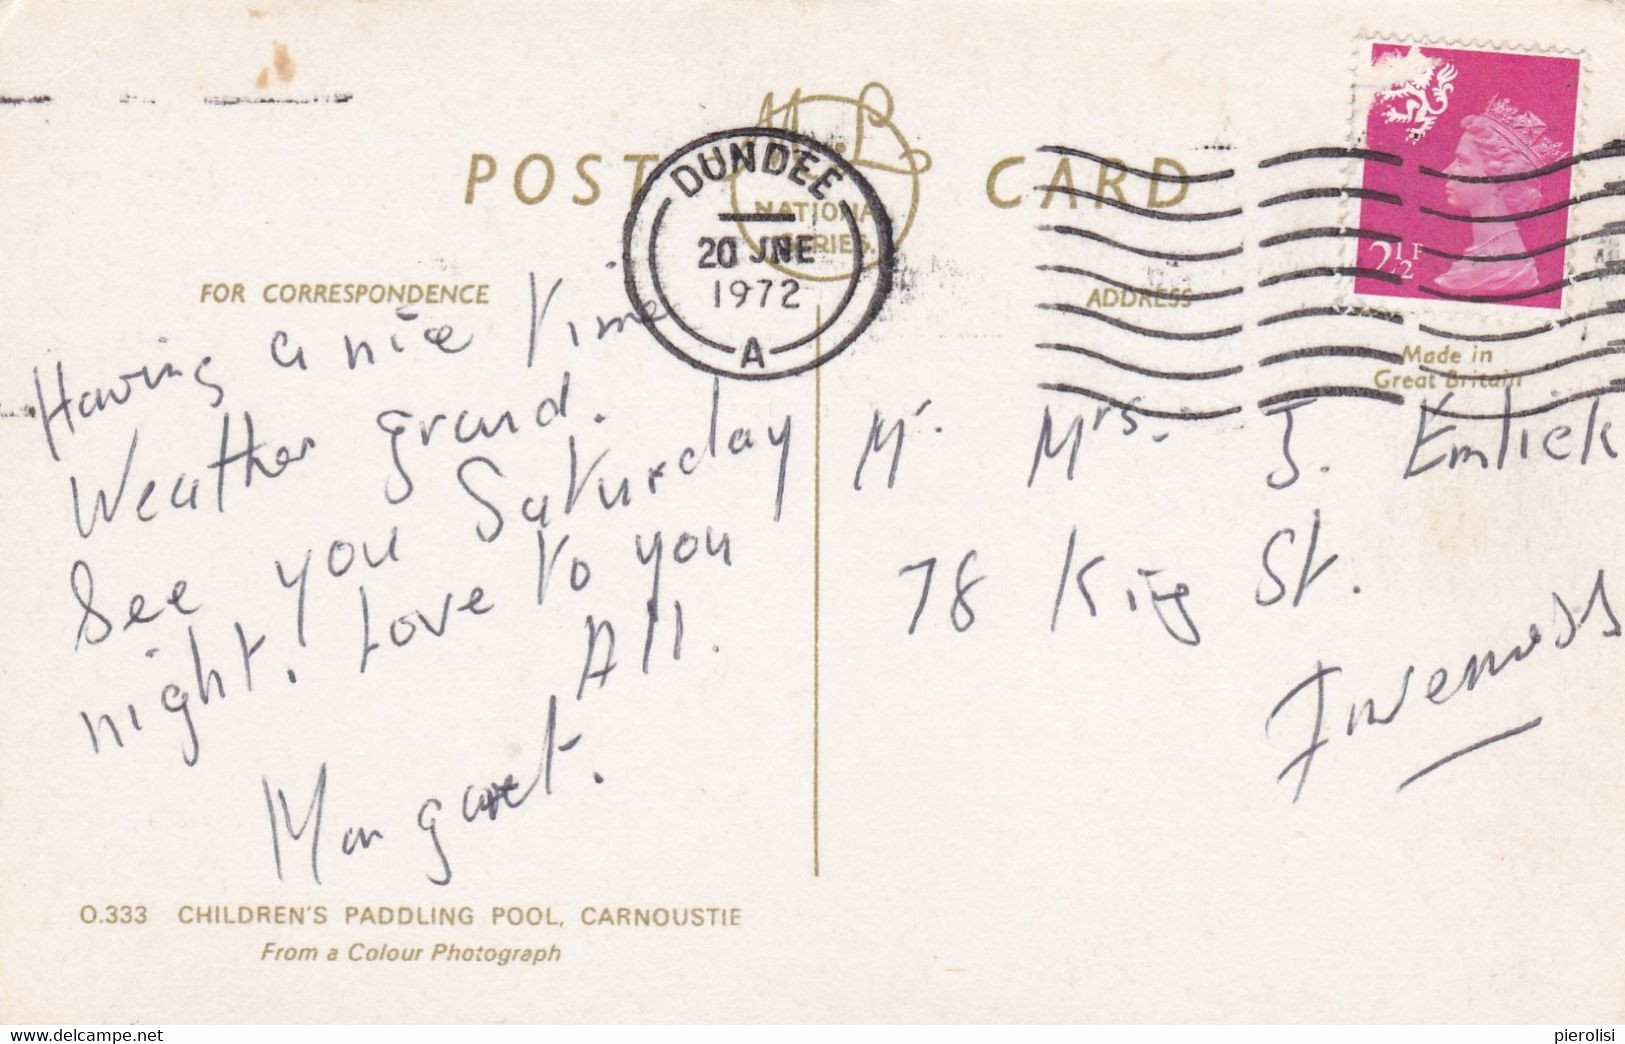 POST CARD
M & L
NATIONAL
SERIES.
DUNDEE
20 JNE
1972
A
2½P
FOR CORRESPONDENCE
ADDRESS
Made in
Great Britain
Having a nice time
Weather grand.
See you Saturday
night. Love to you
All.
Margaret.
Mr. Mrs. J. Emlick
78 King St.
Inverness
O.333 CHILDREN'S PADDLING POOL, CARNOUSTIE
From a Colour Photograph
www.delcampe.net
pierolisi